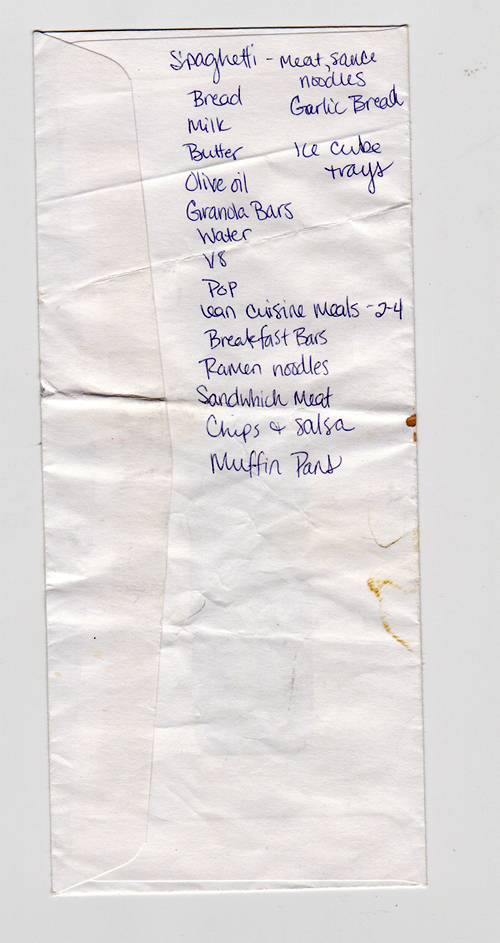 Spaghetti - Meat, sauce
noodles
Bread
Garlic Bread
Milk
Butter
Ice cube
trays
Olive oil
Granola Bars
Water
V8
Pop
Lean Cuisine Meals - 2-4
Breakfast Bars
Ramen noodles
Sandwhich Meat
Chips & Salsa
Muffin Pans